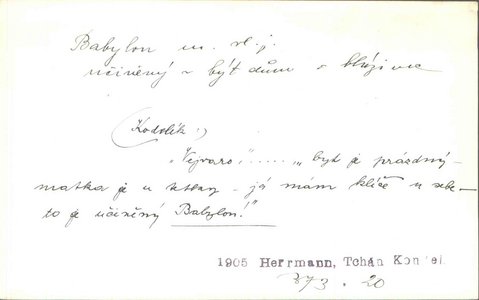 Babylon m. vl. j.
učiněný ~ být dům o blázince
(Kodolík:)
"Vejvaro!"..... "byt je prázdný –
matka je u tetky – já mám klíče u sebe –
to je učiněný Babylon!"
1905 Herrmann, Tchán Kondel
373 . 20